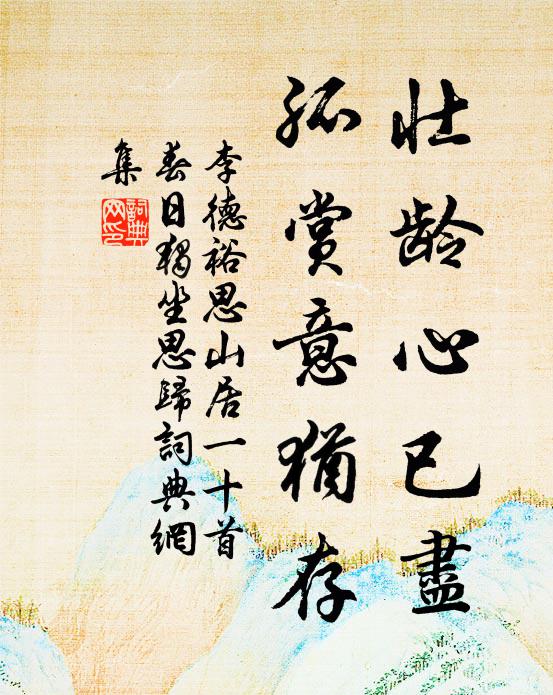 壮龄心已盡
孤赏意猶存
李德裕思山居一十首
春日獨坐思歸詞典網
集
詞典
网印